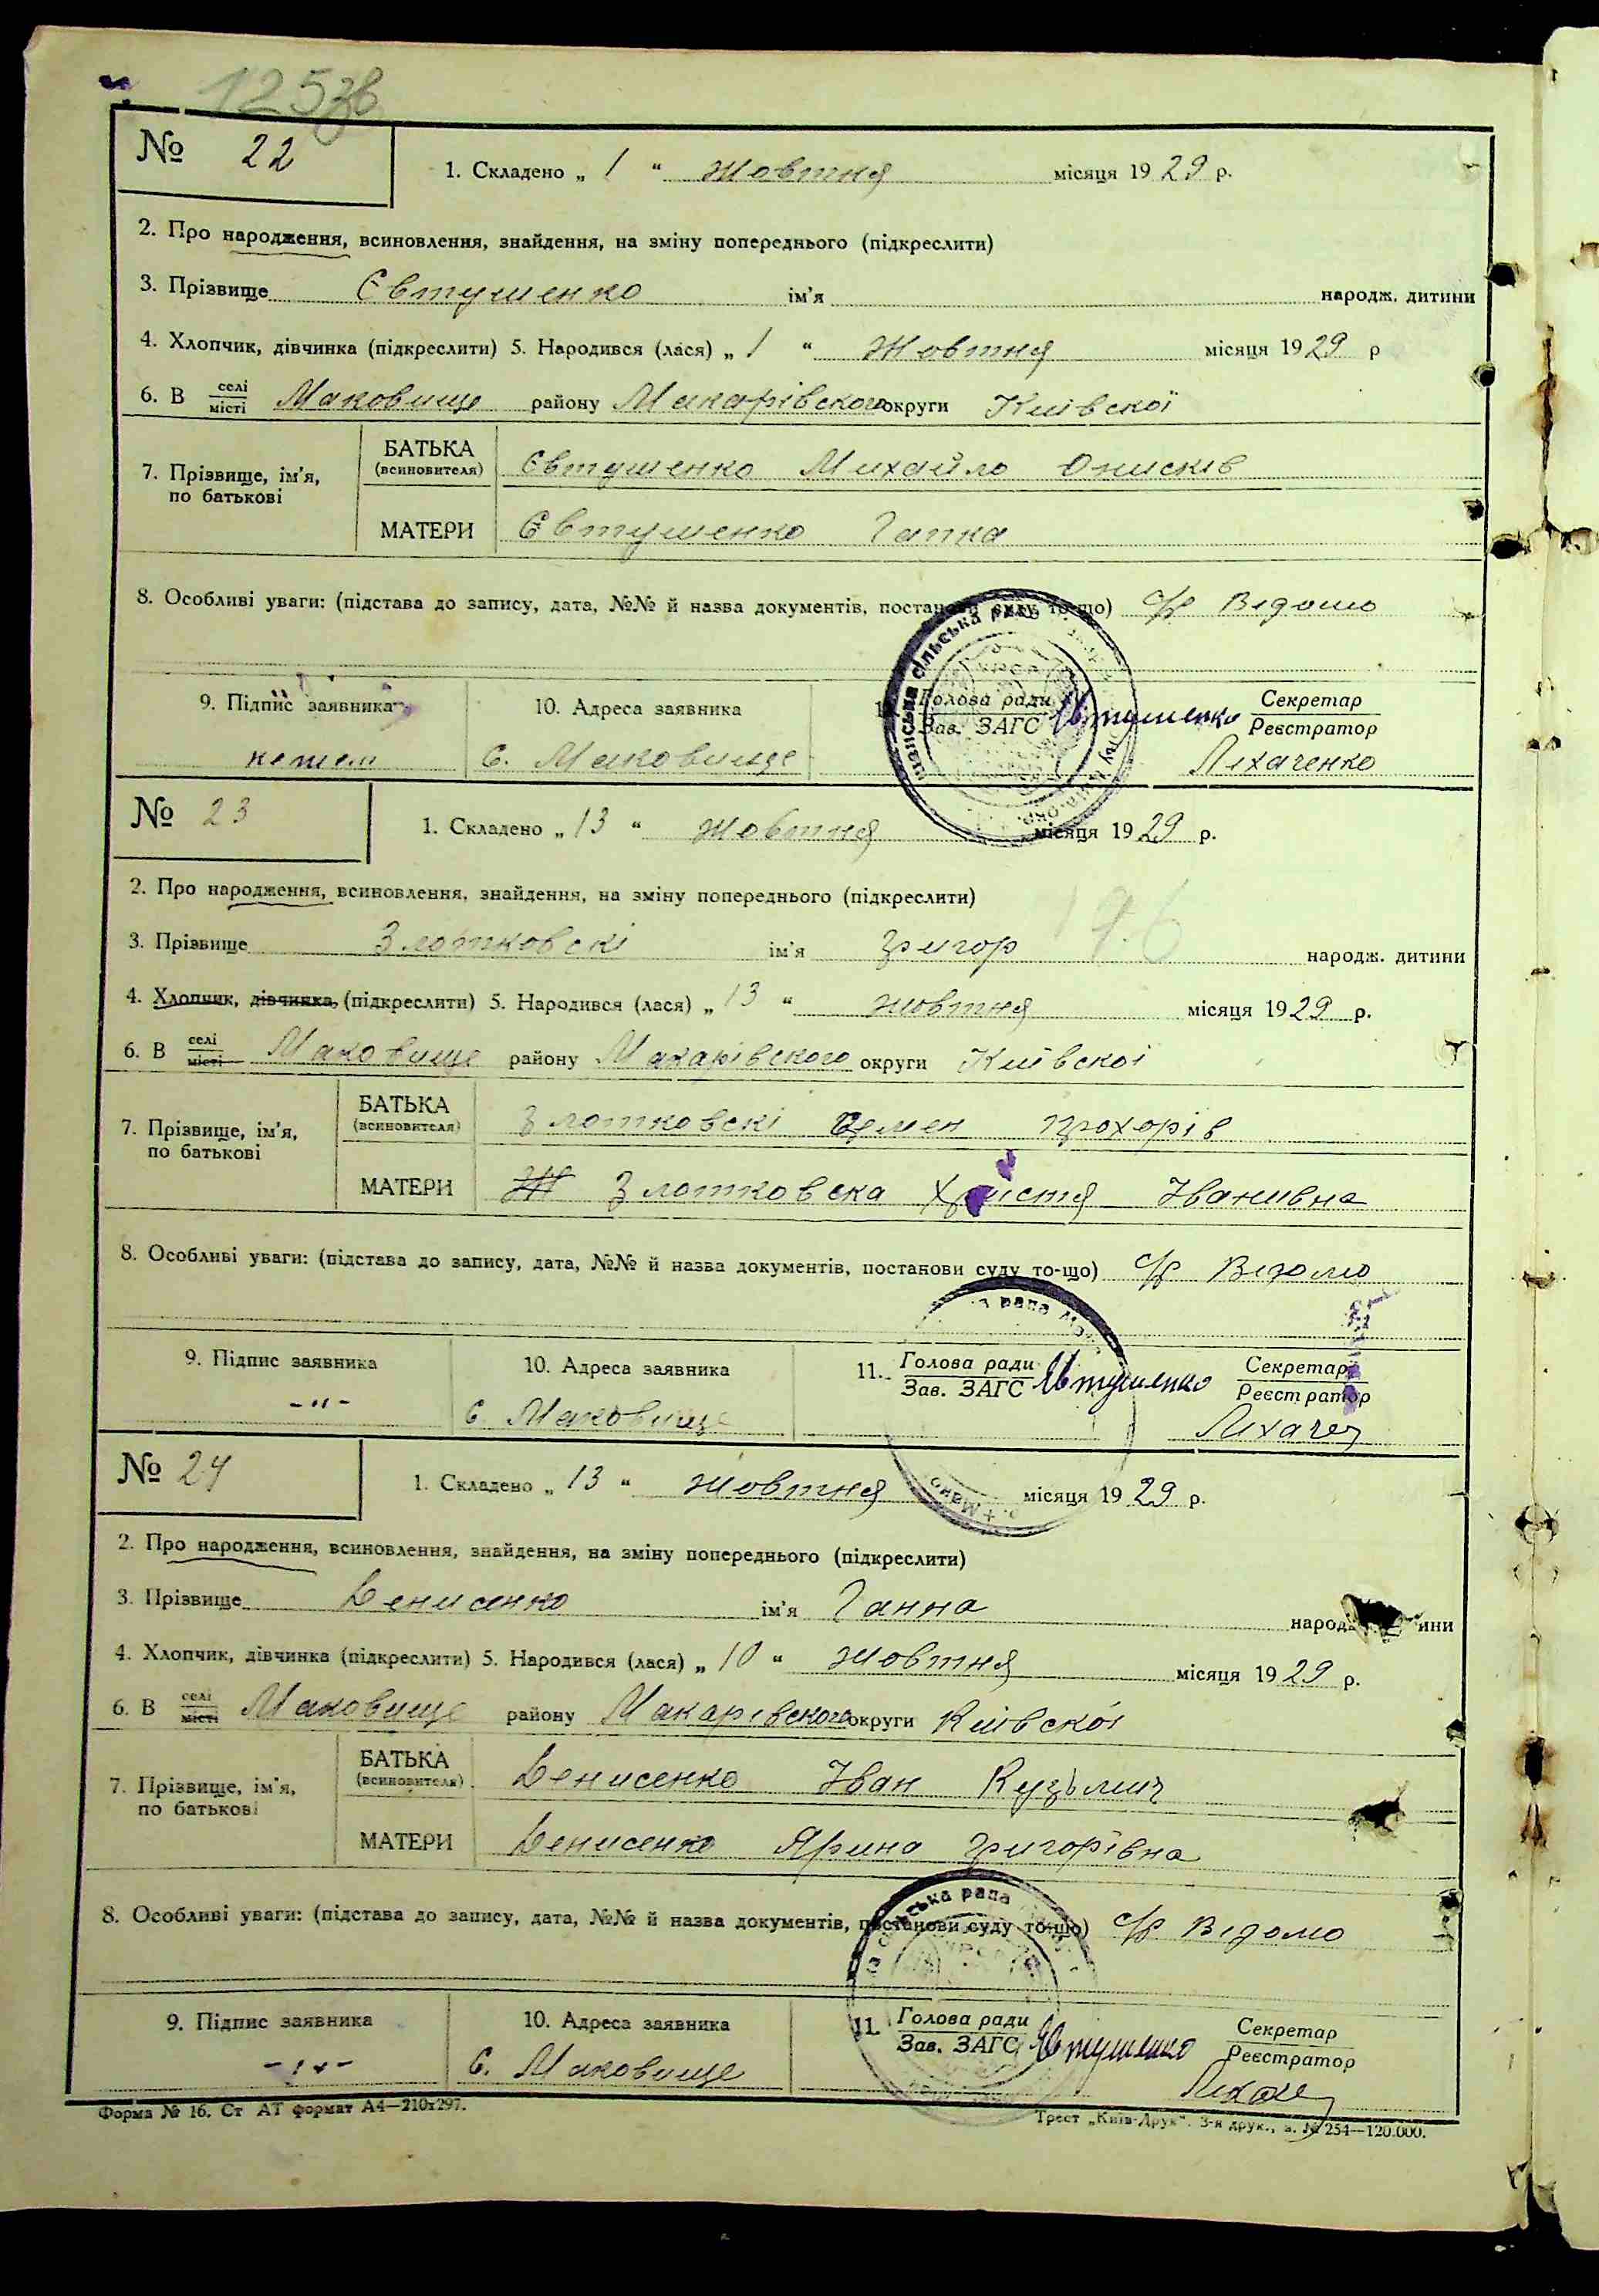 125зв
№ 22
1. Складено „ 1 “ жовтня місяця 1929 р.
2. Про народження, всиновлення, знайдення, на зміну попереднього (підкреслити)
3. Прізвище Євтушенко ім'я народж. дитини
4. Хлопчик, дівчинка (підкреслити) 5. Народився (лася) „ 1 “ жовтня місяця 1929 р
6. В селі місті Маковище району Макарівского округи Київскої
7. Прізвище, ім'я, по батькові
БАТЬКА (всиновителя) Євтушенко Михайло Онисків
МАТЕРИ Євтушенко Гапка
8. Особливі уваги: (підстава до запису, дата, №№ й назва документів, постанови суду то-що) с/р Відомо
9. Підпис заявника 10. Адреса заявника 11. Голова ради Зав. ЗАГС Євтушенко Секретар Реєстратор
с. Маковище Ліхаченко
№ 23
1. Складено „ 13 “ жовтня місяця 1929 р.
2. Про народження, всиновлення, знайдення, на зміну попереднього (підкреслити)
3. Прізвище Злотковскі ім'я Григор народж. дитини
4. Хлопчик, дівчинка, (підкреслити) 5. Народився (лася) „ 13 “ жовтня місяця 1929 р.
6. В селі місті Маковище району Макарівского округи Київскоі
7. Прізвище, ім'я, по батькові
БАТЬКА (всиновителя) Злотковскі Семен Прохорів
МАТЕРИ Злотковска Христя Іванивна
8. Особливі уваги: (підстава до запису, дата, №№ й назва документів, постанови суду то-що) с/р Відомо
9. Підпис заявника 10. Адреса заявника 11. Голова ради Зав. ЗАГС Євтушенко Секретар Реєстратор
-"- с. Маковище Ліхачен
№ 24
1. Складено „ 13 “ жовтня місяця 1929 р.
2. Про народження, всиновлення, знайдення, на зміну попереднього (підкреслити)
3. Прізвище Денисенко ім'я Ганна народж. дитини
4. Хлопчик, дівчинка (підкреслити) 5. Народився (лася) „ 10 “ жовтня місяця 1929 р.
6. В селі місті Маковище району Макарівского округи Київскоі
7. Прізвище, ім'я, по батькові
БАТЬКА (всиновителя) Денисенко Іван Кузьмич
МАТЕРИ Денисенко Ярина Григорівна
8. Особливі уваги: (підстава до запису, дата, №№ й назва документів, постанови суду то-що) с/р Відомо
9. Підпис заявника 10. Адреса заявника 11. Голова ради Зав. ЗАГС Євтушенко Секретар Реєстратор
-"- с. Маковище
Форма № 16. Ст АТ формат А4—210х297. Трест „Київ-Друк“. 3-я друк., з. № 254—120.000.